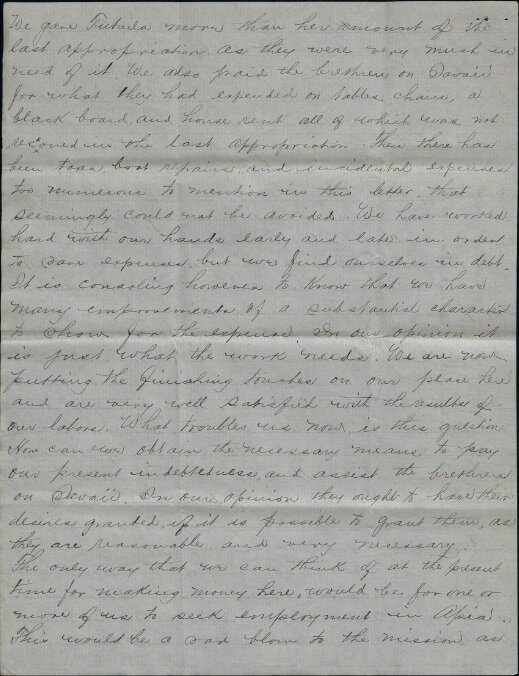 We gave Tutuila more than her amount of the
last appropriation, as they were very much in
need of it. We also paid the brethren on Savaii
for what they had expended on tables, chairs, a
black board, and house rent all of which was not
reconed in the last appropriation. Then there has
been taxs, boat repairs, and incidental expenses
too numerous to mention in this letter, that
seemingly could not be avoided. We have worked
hard with our hands early and late in order
to save expenses, but we find ourselves in debt.
It is consoling however to know that we have
many improvements of a substantial character
to show for the expense. In our opinion it
is just what the work needs. We are now
putting the finishing touches on our place here
and are very well satisfied with the results of
our labors. What troubles us now, is this question
How can we obtain the necessary means, to pay
our present indebtedness, and assist the brethren
on Savaii. In our opinion they ought to have their
desires granted, if it is possible to grant them, as
they are reasonable and very necessary.
The only way that we can think of at the present
time for making money here, would be for one or
more of us to seek employment in Apia.
This would be a sad blow to the mission, as